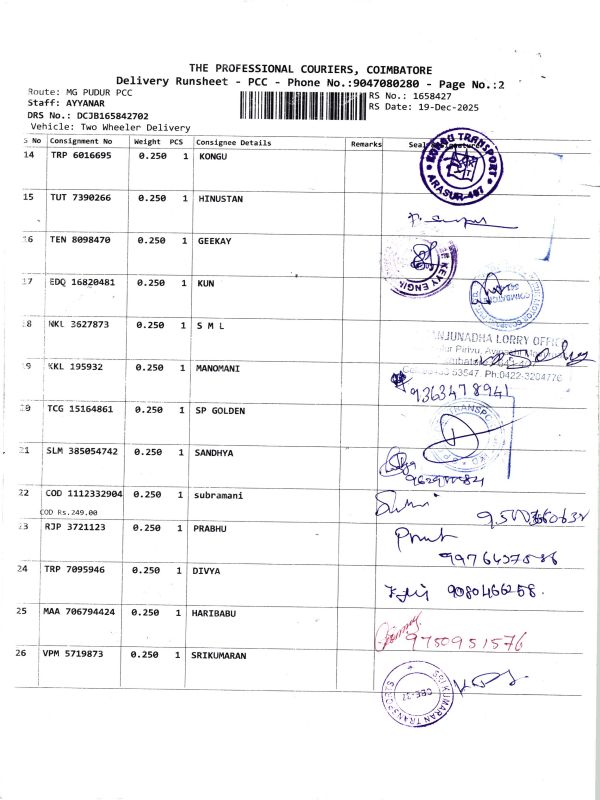 THE PROFESSIONAL COURIERS, COIMBATORE
Delivery Runsheet - PCC - Phone No.:9047080280 - Page No.:2
Route: MG PUDUR PCC
RS No.: 1658427
Staff: AYYANAR
RS Date: 19-Dec-2025
DRS No.: DCJB165842702
Vehicle: Two Wheeler Delivery
S No Consignment No Weight PCS Consignee Details Remarks
14 TRP 6016695 0.250 1 KONGU
KONGU TRANSPORT
ARASUR-407
15 TUT 7390266 0.250 1 HINUSTAN
16 TEN 8098470 0.250 1 GEEKAY
17 EDQ 16820481 0.250 1 KUN
18 NKL 3627873 0.250 1 S M L
ANJUNADHA LORRY OFFIC
Ph:0422-3204776
19 KKL 195932 0.250 1 MANOMANI
9363478941
20 TCG 15164861 0.250 1 SP GOLDEN
21 SLM 385054742 0.250 1 SANDHYA
22 COD 1112332904 0.250 1 subramani
COD Rs.249.00
23 RJP 3721123 0.250 1 PRABHU
24 TRP 7095946 0.250 1 DIVYA
9080466258.
25 MAA 706794424 0.250 1 HARIBABU
9750951576
26 VPM 5719873 0.250 1 SRIKUMARAN
SRI KUMARAN TRANSPORTS
CBE-37